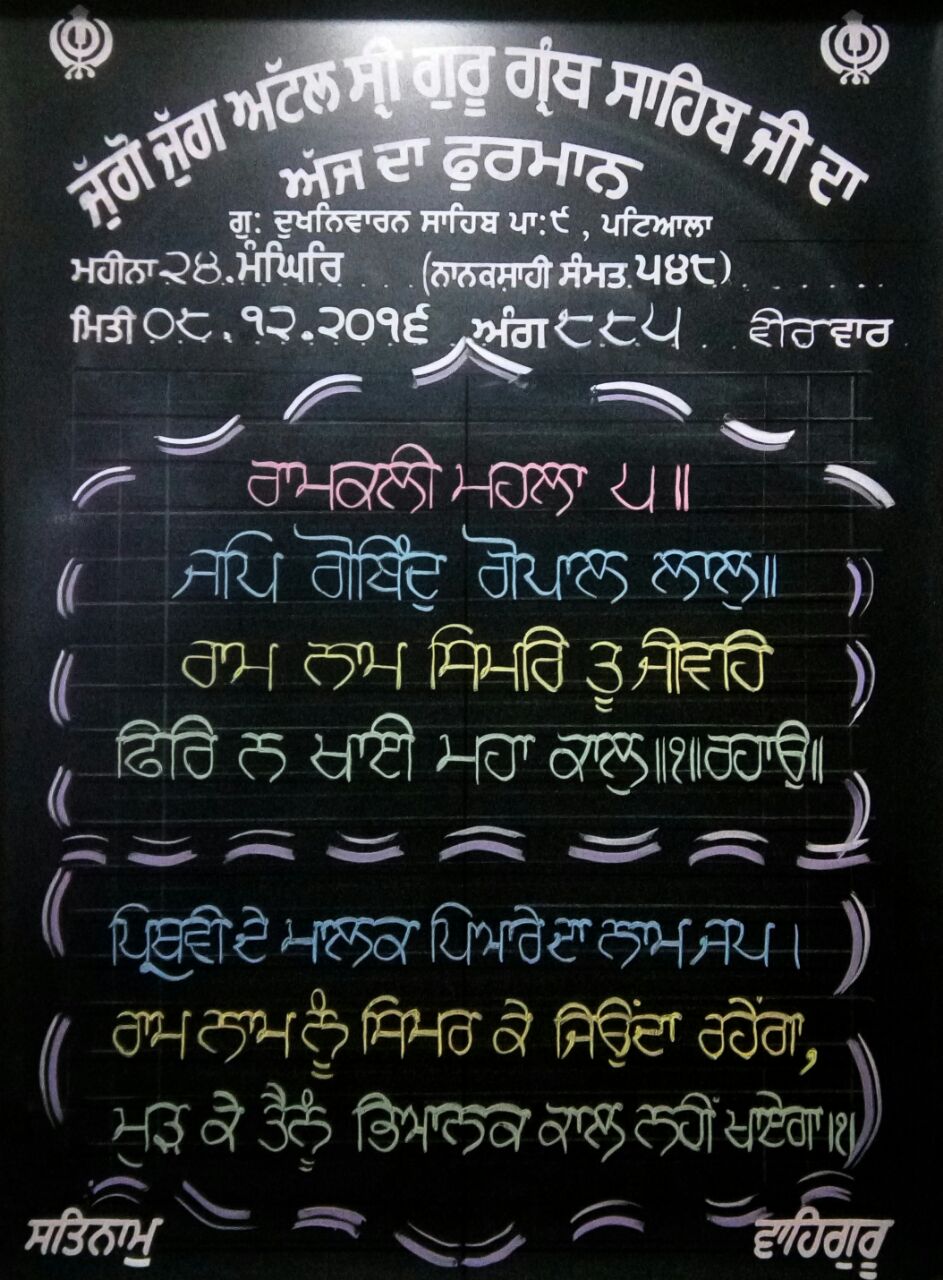 ਜੁੱਗੋ ਜੁੱਗ ਅਟੱਲ ਸ੍ਰੀ ਗੁਰੂ ਗ੍ਰੰਥ ਸਾਹਿਬ ਜੀ ਦਾ
ਅੱਜ ਦਾ ਫੁਰਮਾਨ
ਗੁ: ਦੁਖਨਿਵਾਰਨ ਸਾਹਿਬ ਪਾ:੯ , ਪਟਿਆਲਾ
ਮਹੀਨਾ ੨੪. ਮੰਘਿਰਿ (ਨਾਨਕਸਾਹੀ ਸੰਮਤ ੫੪੮)
ਮਿਤੀ ੦੮.੧੨.੨੦੧੬ ਅੰਗ ੮੮੫ ਵੀਰਵਾਰ
ਰਾਮਕਲੀ ਮਹਲਾ ੫॥
ਜਪਿ ਗੋਬਿੰਦੁ ਗੋਪਾਲ ਲਾਲੁ॥
ਰਾਮ ਨਾਮ ਸਿਮਰਿ ਤੂ ਜੀਵਹਿ
ਫਿਰਿ ਨ ਖਾਈ ਮਹਾ ਕਾਲੁ॥੧॥ਰਹਾਉ॥
ਪ੍ਰਿਥਵੀ ਦੇ ਮਾਲਕ ਪਿਆਰੇ ਦਾ ਨਾਮ ਜਪ।
ਰਾਮ ਨਾਮ ਨੂੰ ਸਿਮਰ ਕੇ ਜਿਉਂਦਾ ਰਹੇਂਗਾ,
ਮੁੜ ਕੇ ਤੈਨੂੰ ਭਿਆਨਕ ਕਾਲ ਨਹੀਂ ਖਾਏਗਾ॥੧॥
ਸਤਿਨਾਮੁ ਵਾਹਿਗੁਰੂ